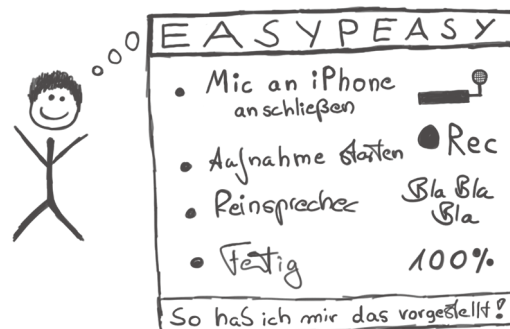 EASYPEASY
• Mic an iPhone
anschließen
• Aufnahme starten
Rec
• Reinsprechen
Bla Bla
Bla
• Fertig
100%
So hab ich mir das vorgestellt!